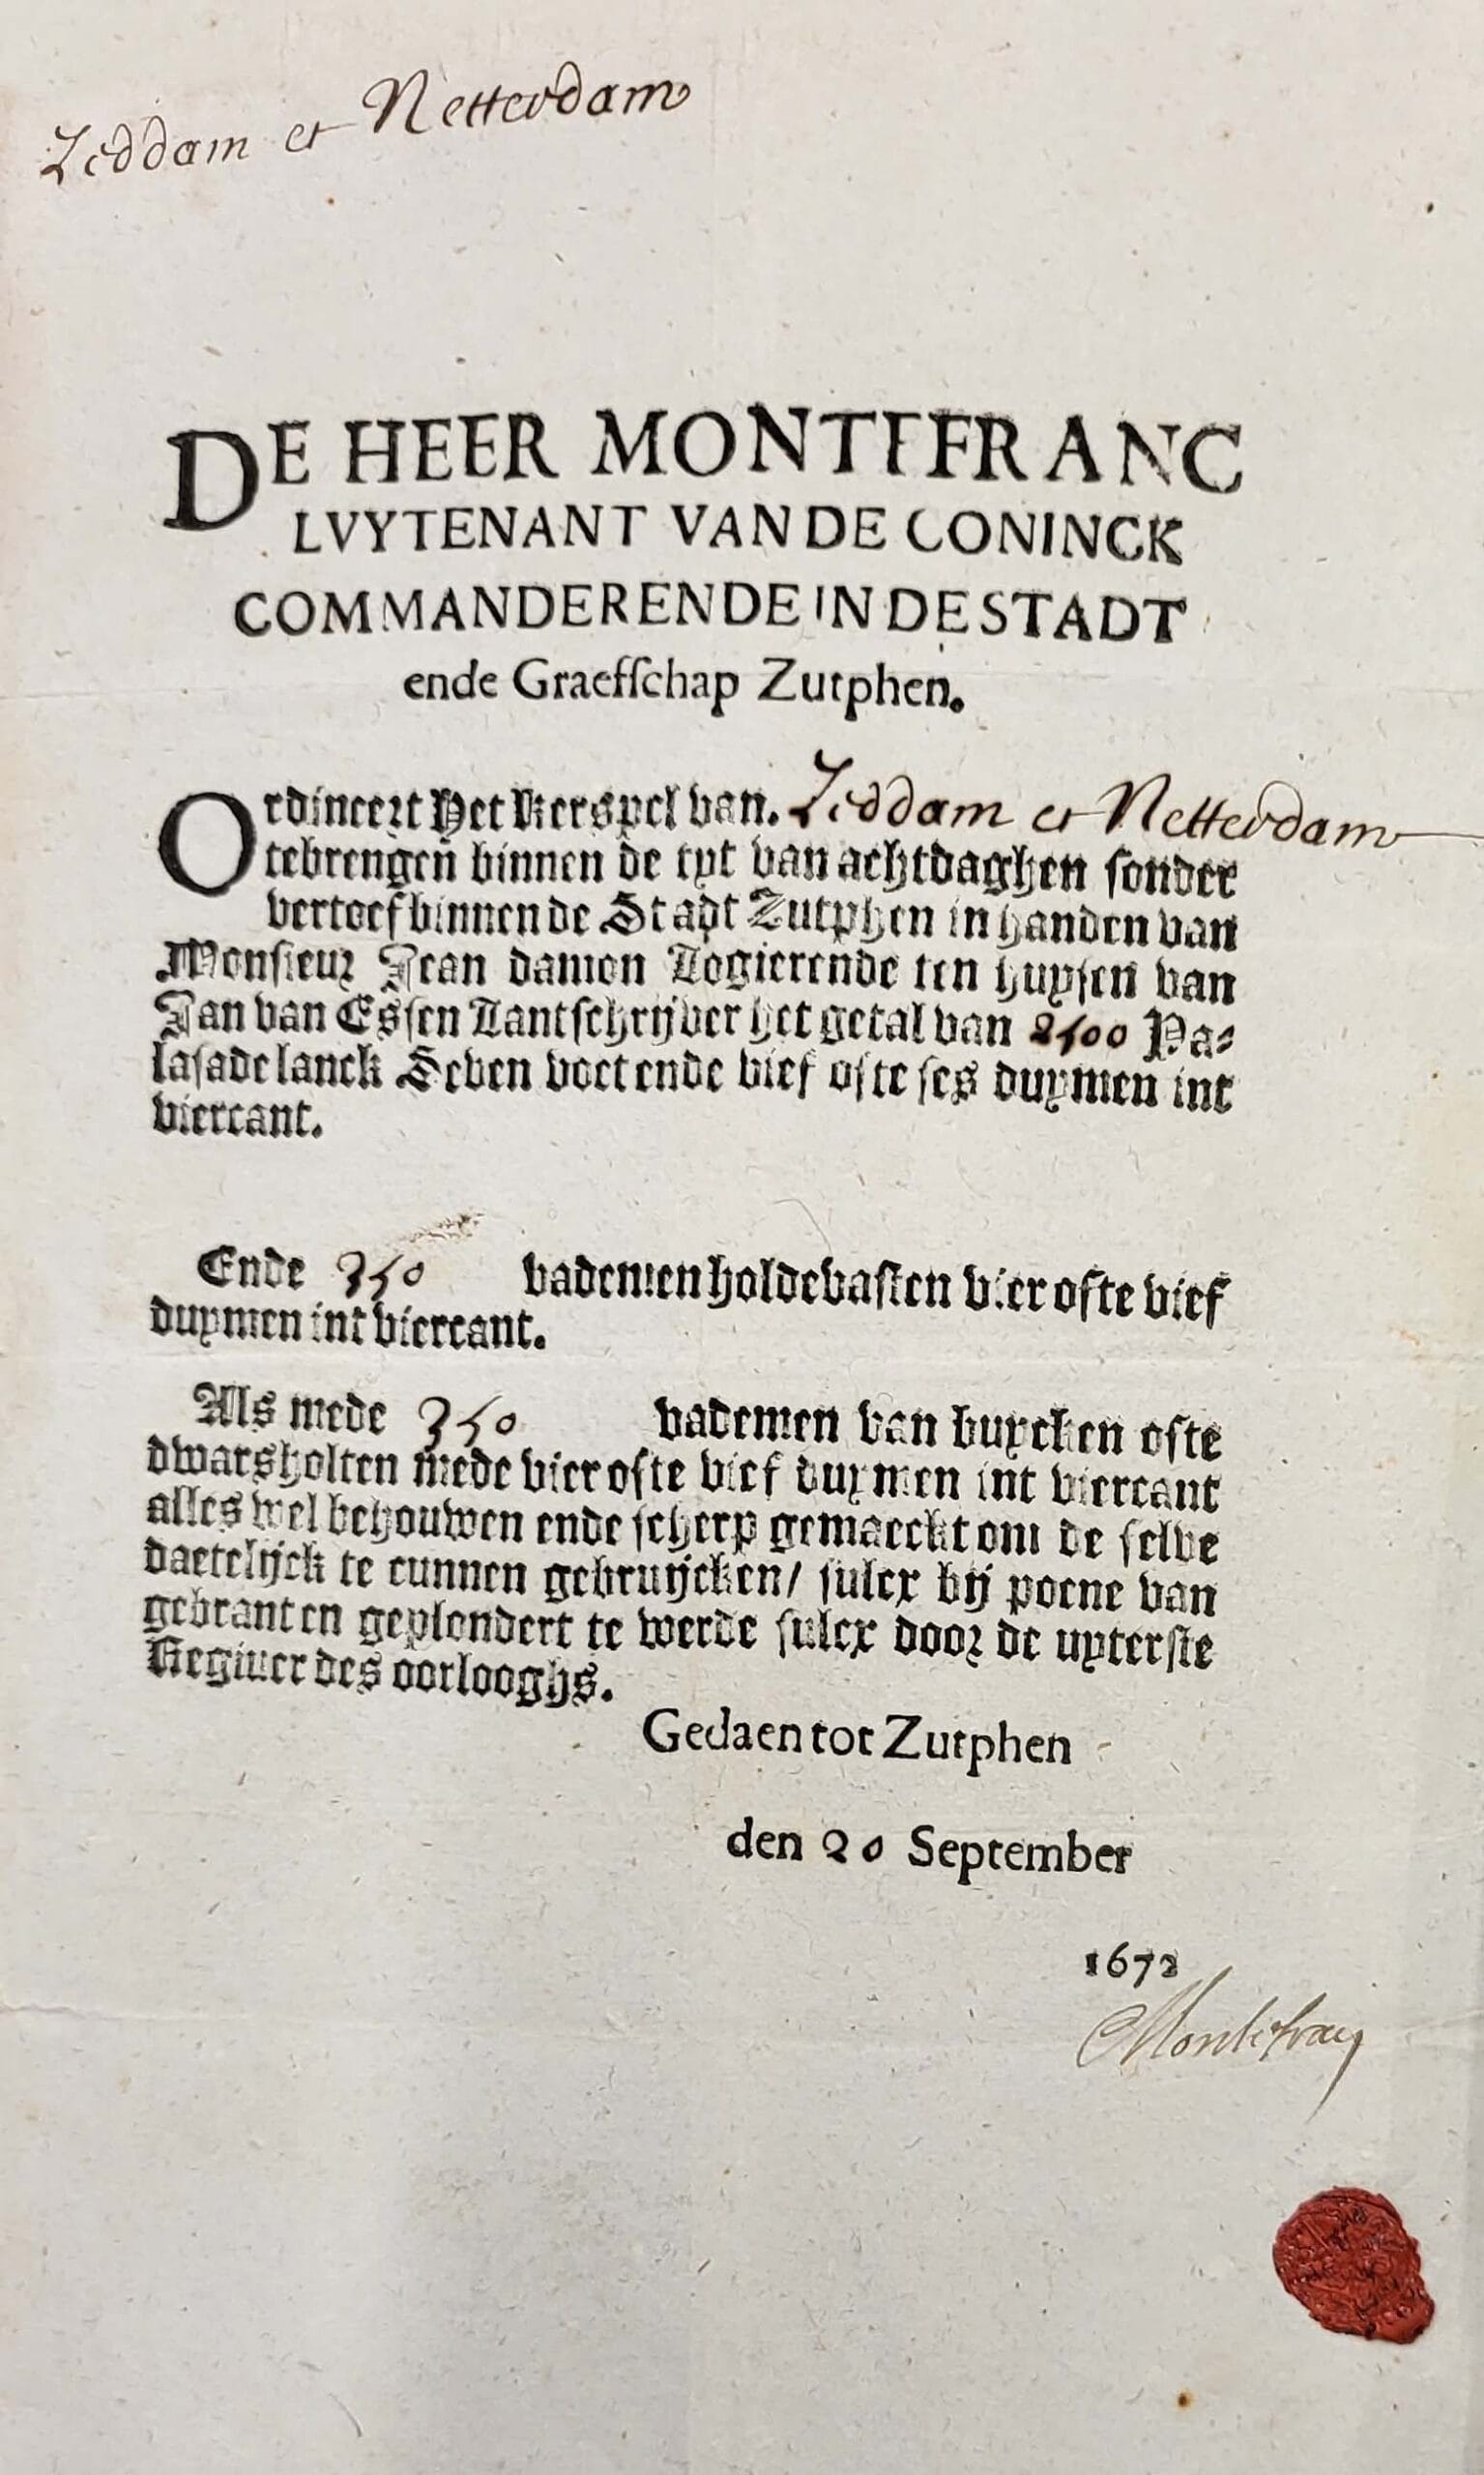 Zeddam et Netterdam
DE HEER MONTEFRANC
LVYTENANT VAN DE CONINCK
COMMANDERENDE IN DE STADT
ende Graefſchap Zutphen.
Ordineert Het Kerspel van. Zeddam et Netterdam
tebrengen binnen de tyt van achtdaghen sonder
vertoef binnen de Stadt Zutphen in handen van
Monsieur Jean damon Logierende ten huysen van
Jan van Essen Lantschrijver het getal van 2500 Pa-
lasade lanck Seven voet ende vief ofte ses duymen int
viercant.
Ende 350 vademen holdevasten vier ofte vief
duymen int viercant.
Als mede 350 vademen van buycken ofte
dwarsholten mede vier ofte vief duymen int viercant
alles wel behouwen ende scherp gemaeckt om de selve
daetelijck te cunnen gebruijcken/ sulcx bij poene van
gebrant en geplondert te werde sulcx door de uyterste
Regiuer des oorlooghs.
Gedaen tot Zutphen
den 20 September
1672
Montefranq